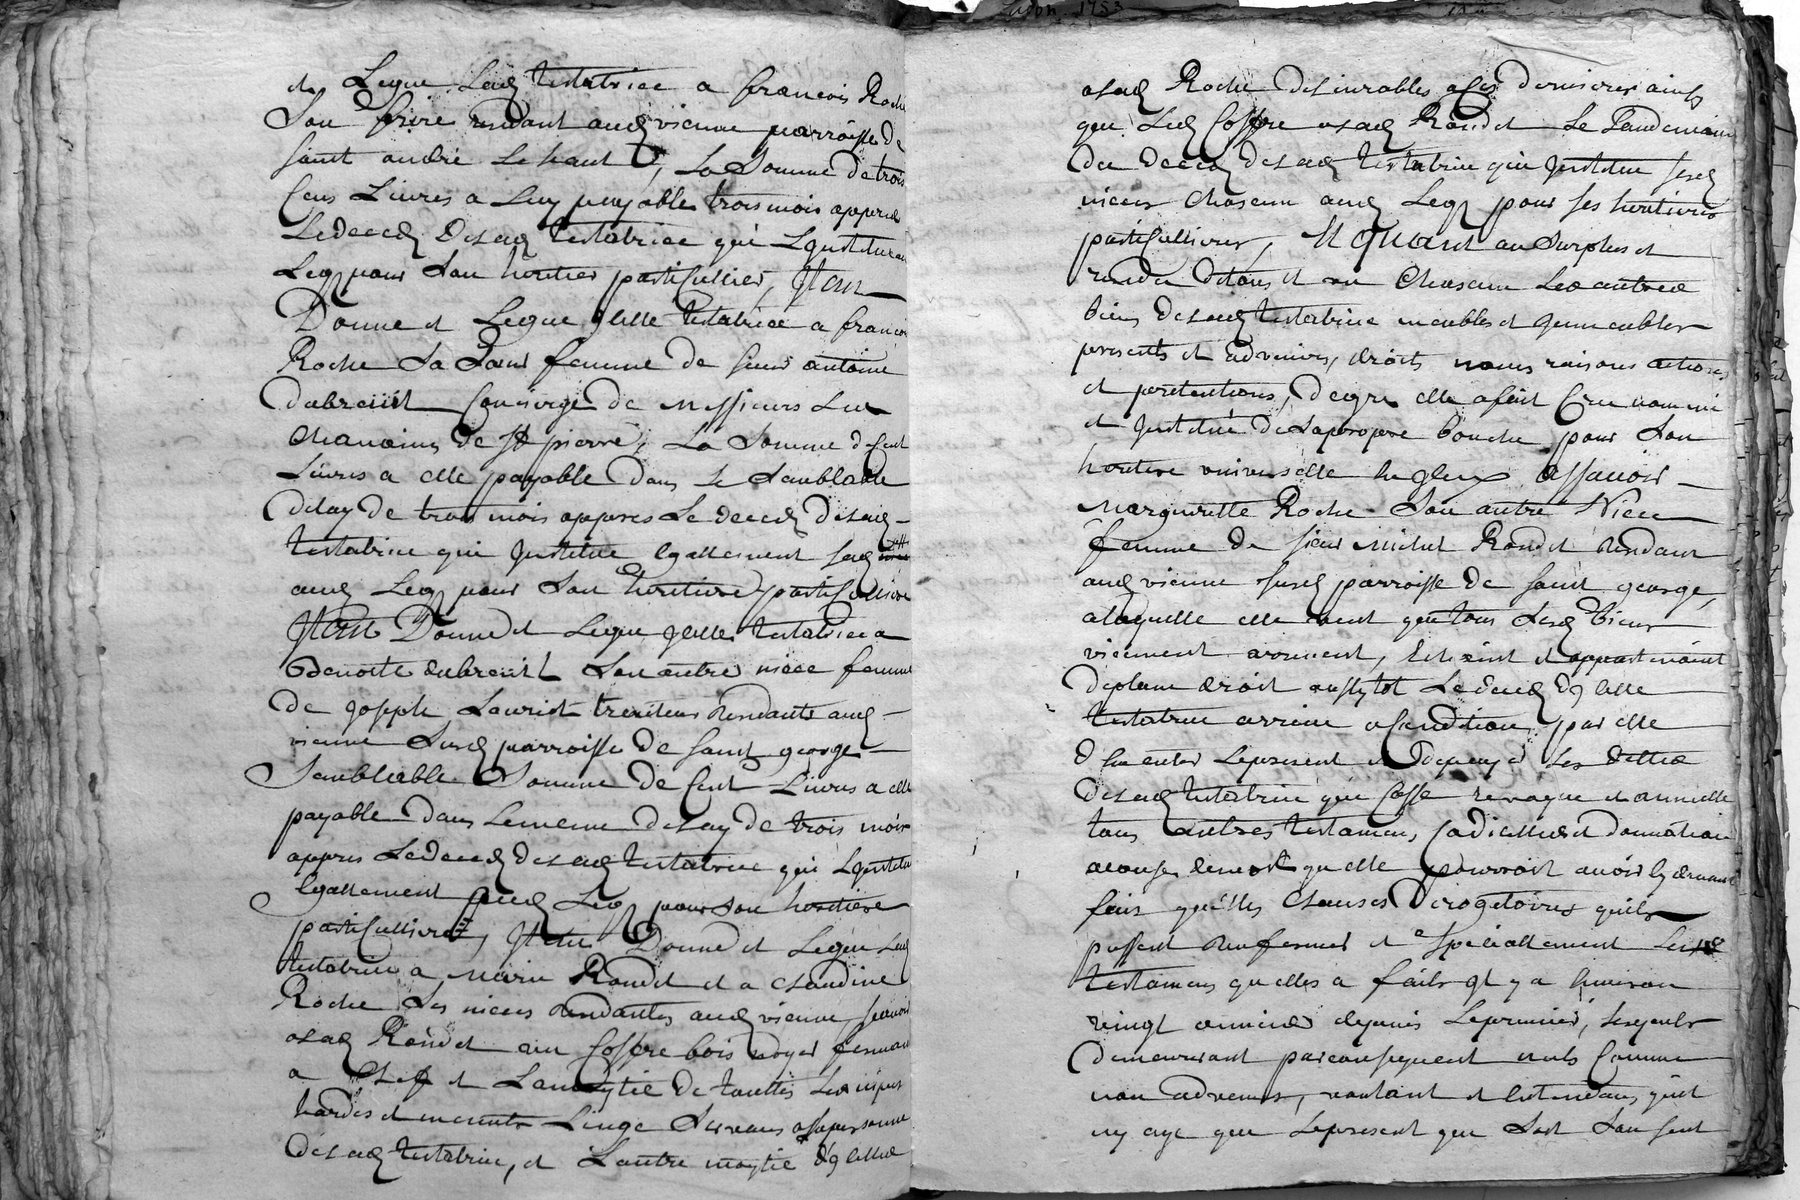 et Legue Lad testatrice a francois Roche
Son frere residant aud vienne parroisse de
saint andré le haut, La Somme de trois
Cens Livres a Luy payable trois mois appres
Le deced de lad testatrice qui Linstitue aud
Leg pour Son heritier particullier, Item
Donne et Legue Icelle testatrice a francoise
Roche Sa Sœur femme de sieur antoine
dubreüil Concierge de Messieurs Les
Chanoines de St pierre, La Somme de Cent
Livres a elle payable dans le Semblable
delay de trois mois appres Le deced de lad
testatrice qui Institue Egallement sad
aud Leg pour Son heritiere particulliere
Item Donne et Legue Icelle testatrice a
Benoite dubreüil Son autre niece femme
de Joseph Lauriot residante aud
vienne Susd parroisse de saint george
Semblable Somme de Cent Livres a elle
payable dans Le meme delay de trois mois
appres Le deced de lad testatrice qui Linstitue
Egallement aud Leg pour Son heritiere
particulliere, Item Donne et Legue Lad
testatrice a Marie Rondet et a Claudine
Roche Ses nieces residantes aud vienne, scavoir
a lad Rondet un Coffre bois noyer fermant
a Clef et La moytié de touttes Les nipes
hardes et menuts Linge Servant a sa personne
de lad testatrice, et Lautre moytié d'Icelles
Lyon 1753
a lad Roche desivrables a ses dernieres ainsy
que Led Coffre a lad Rondet Le Landemain
du deced de lad testatrice qui Institue Sesd
nieces Chascune aud Leg pour ses heritieres
particullieres, Et quant au Surplus et
residu de tous et un Chascun Les autres
biens de lad testatrice meubles et Immeubles
presents et advenirs, droits noms raisons actions
et pretentions, de gré elle a fait Cree nommé
et Institué de sa propre bouche pour Son
heritiere universelle assavoir
Marguerite Roche Son autre Niece
femme de sieur Michel Rondet residant
aud vienne susd parroisse de saint george,
a laquelle elle veut que tous Sesd biens
viennent arrivent, Echeint et appartiennent
de plain droit aussytot Le deced d'Icelle
testatrice arrivé a Condition par elle
d'executer Le present et de payer Les dettes
de lad testatrice qui Casse revoque et annulle
tous autres testamens, Codicilles et donnations
a Cause de mort qu'elle pourroit avoir Cy devant
fait qu'elles Clauses derogatoires quils
pussent renfermer et Speciallement Les
testamens qu'elles a faits Il y a Environ
vingt années depuis Le premier, Lesquels
demeureront par consequent nuls Comme
non advenus, voulant et Entendant qu'il
ny aye que Le present qui Soit Son seul